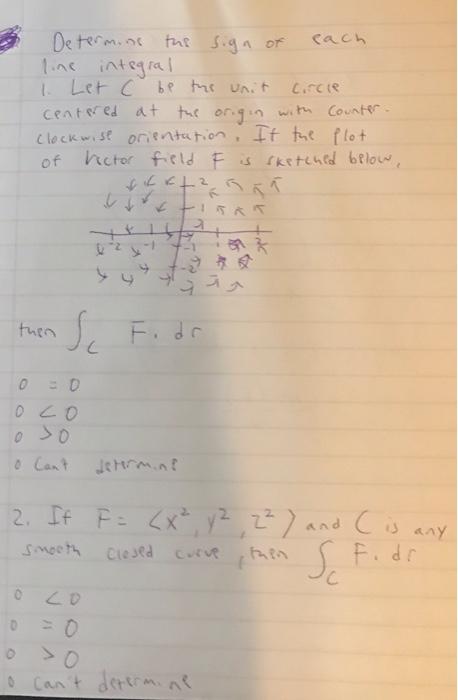 Determine the sign of each
line integral
1. Let C be the unit circle
centered at the origin with counter-
clockwise orientation. If the plot
of vector field F is sketched below,
2
1
-2 -1 1 2
-1
-2
then ∫C F. dr
o = 0
o < 0
o > 0
o Can't determine
2. If F = <x², y², z²> and C is any
smooth closed curve, then ∫C F. dr
o < 0
o = 0
o > 0
o can't determine